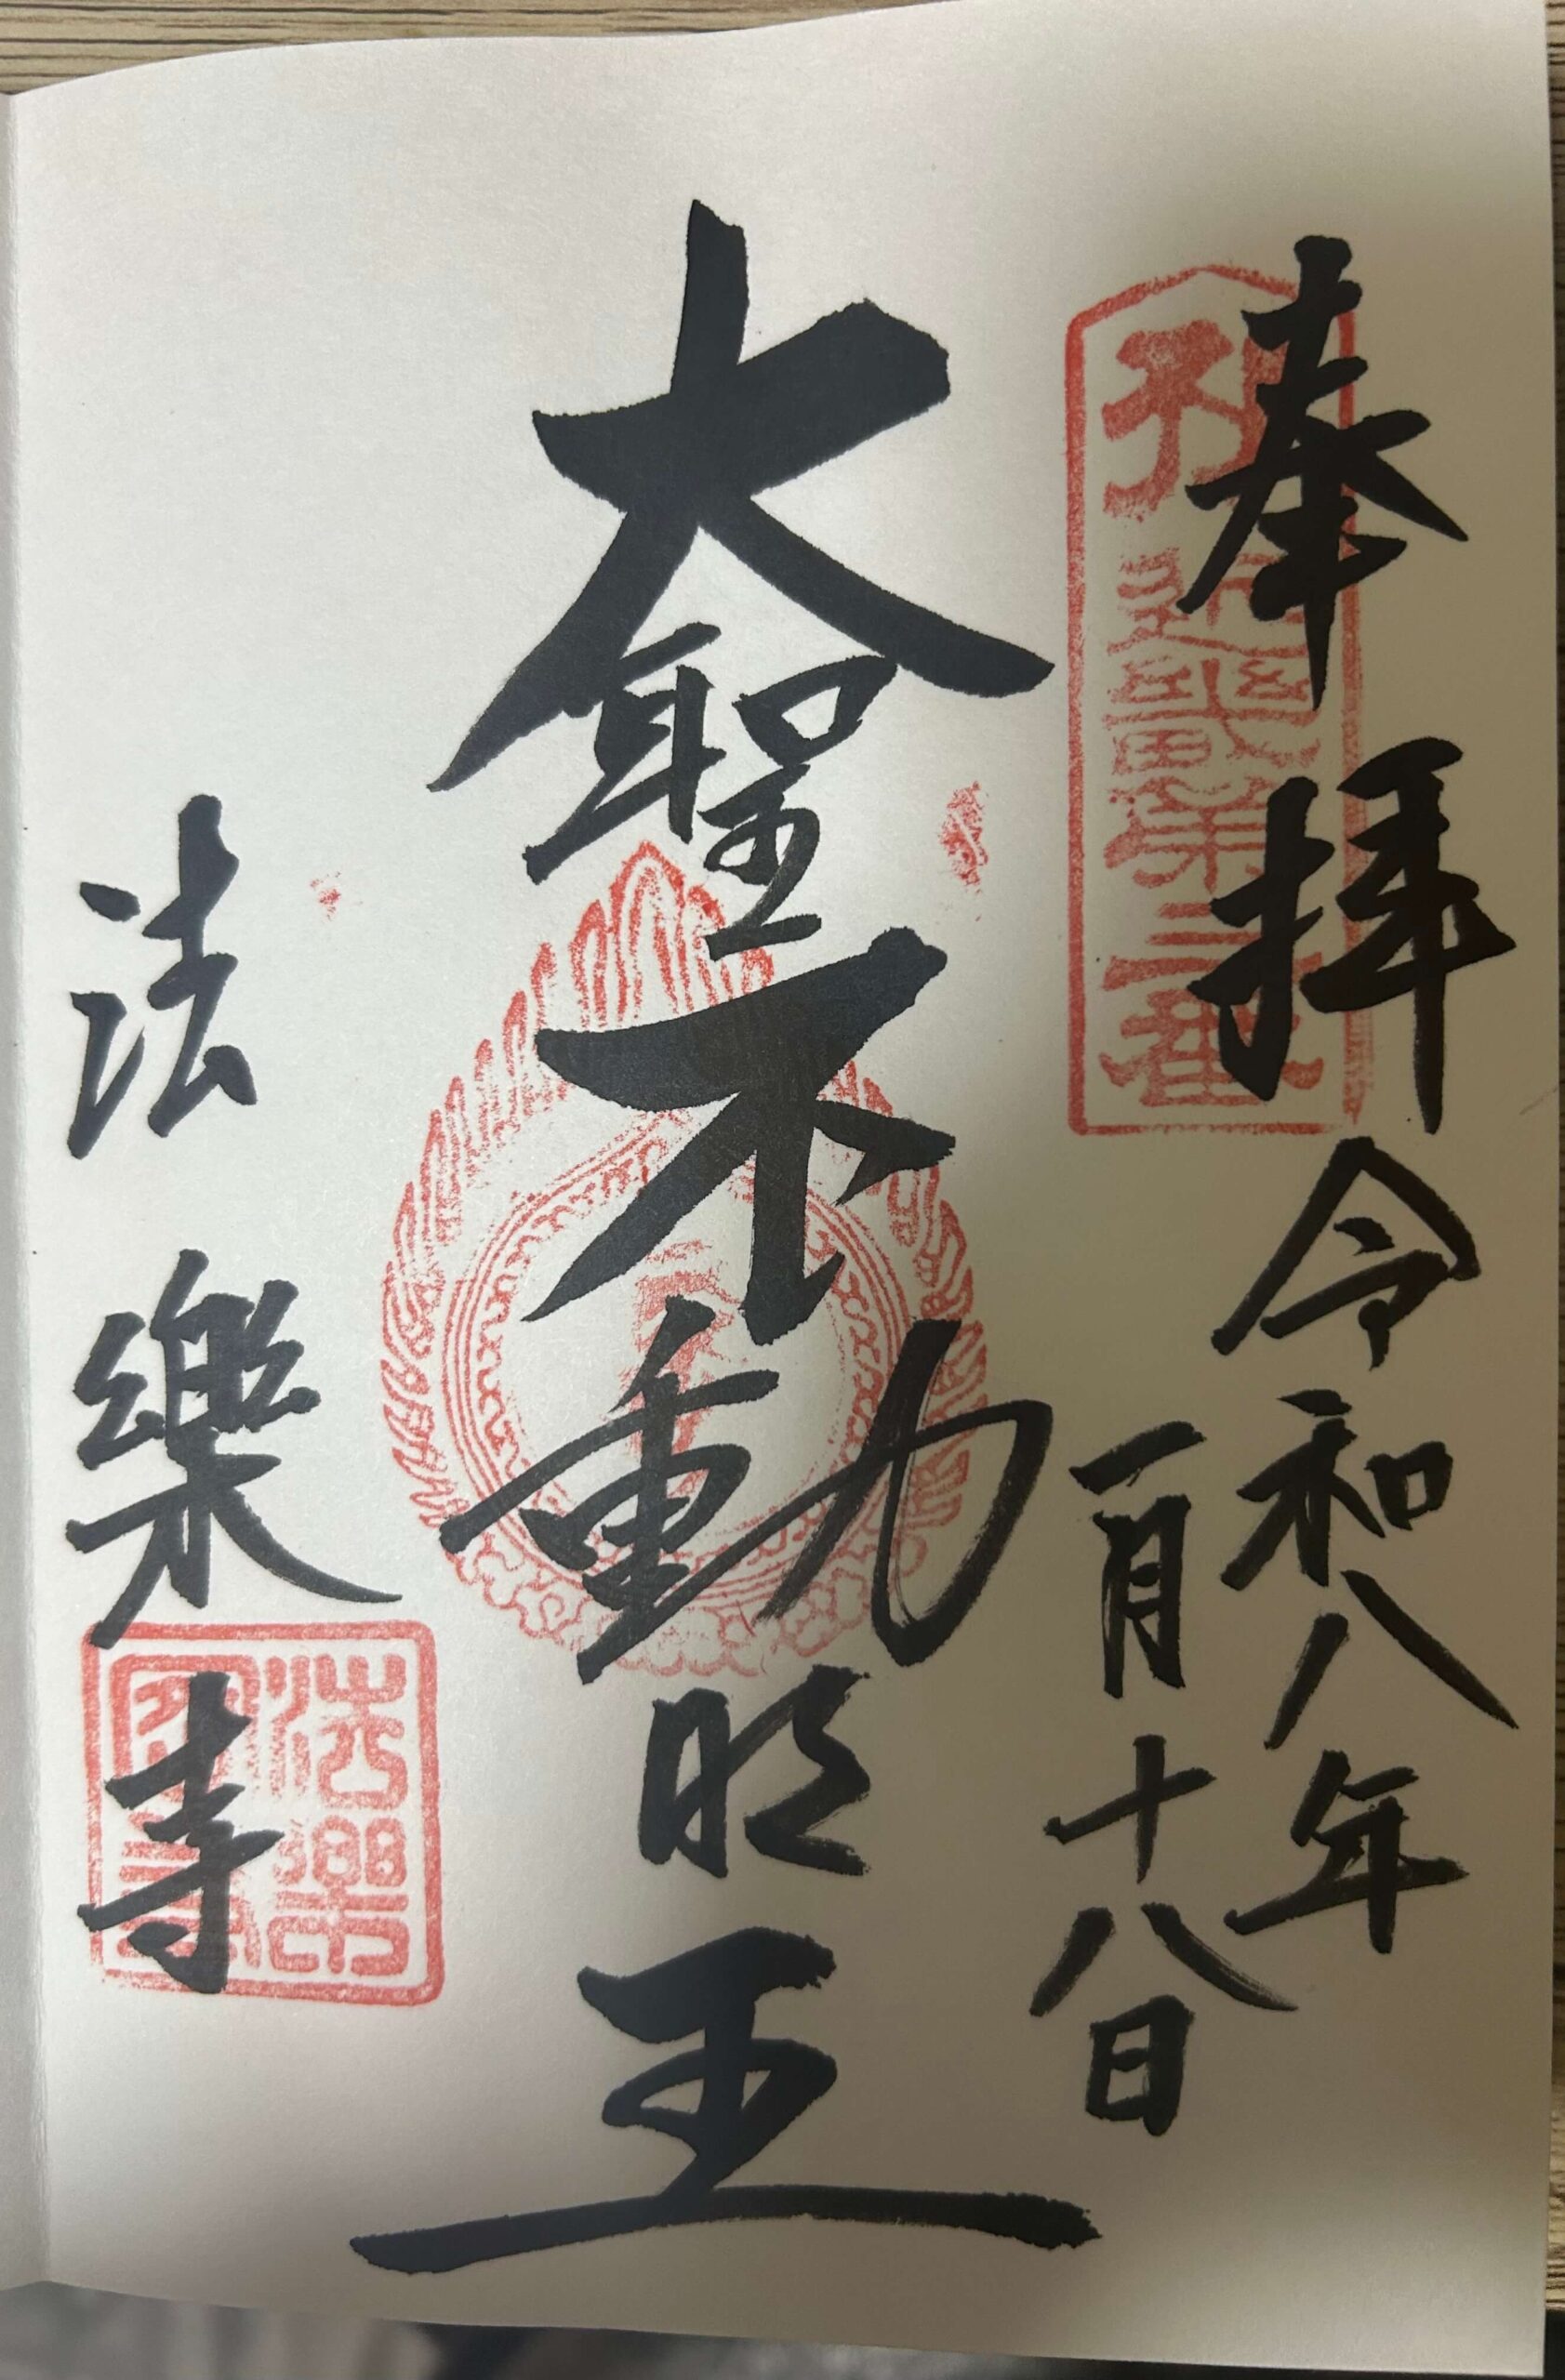 奉拝
令和八年
一月十八日
大聖不動明王
法樂寺
近畿三十六不動第三番
法樂